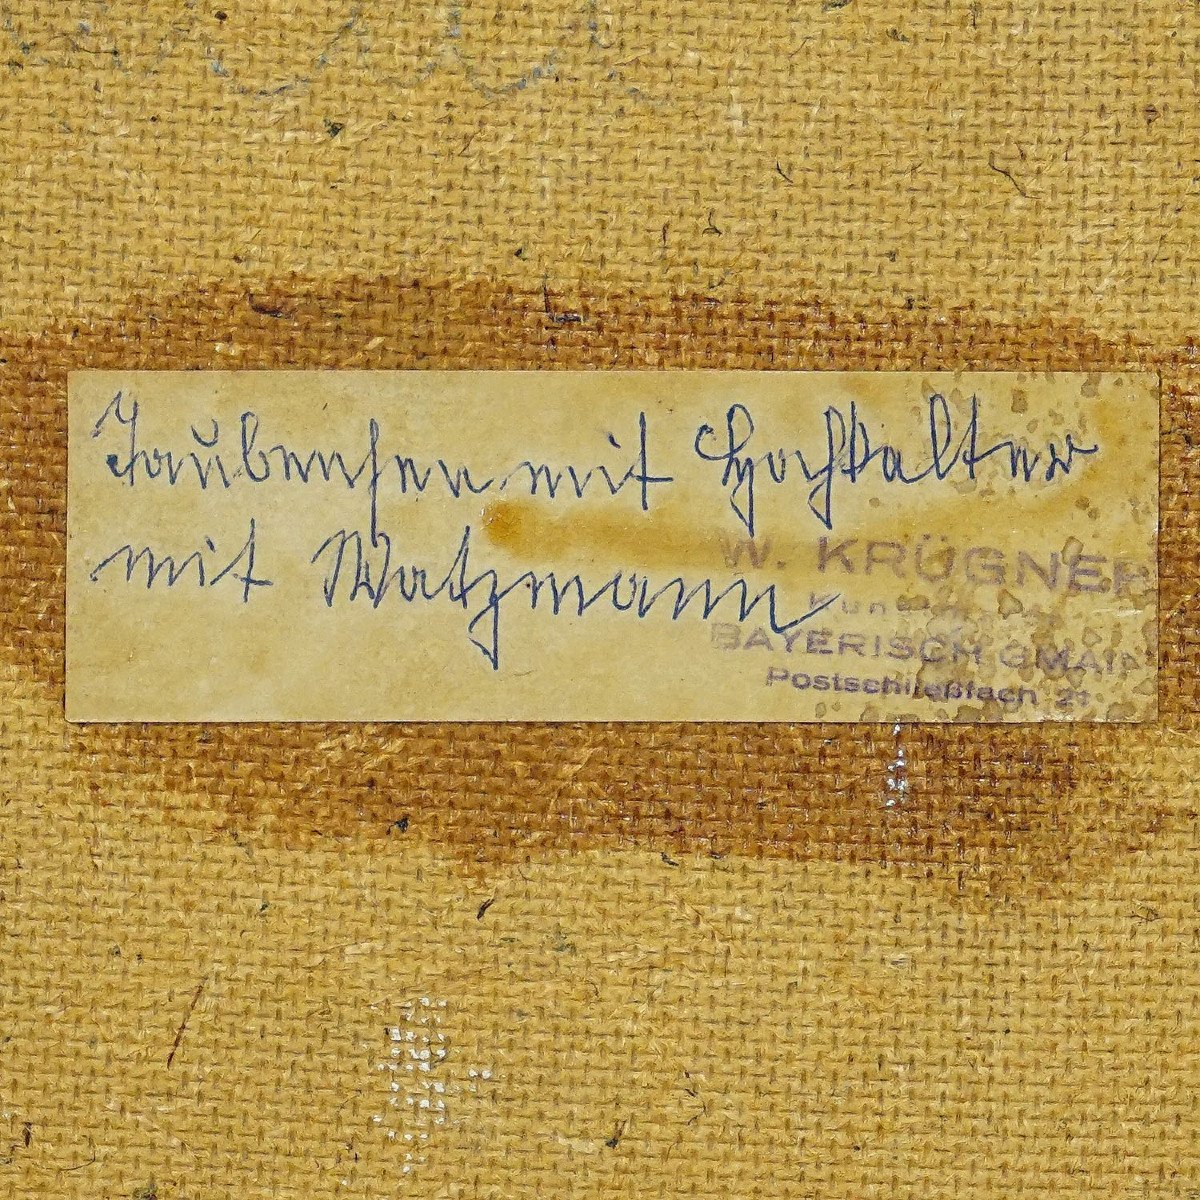 Taubensee mit Hochkalter
mit Watzmann
W. KRÜGNER
BAYERISCH GMAIN
Postschließfach 21